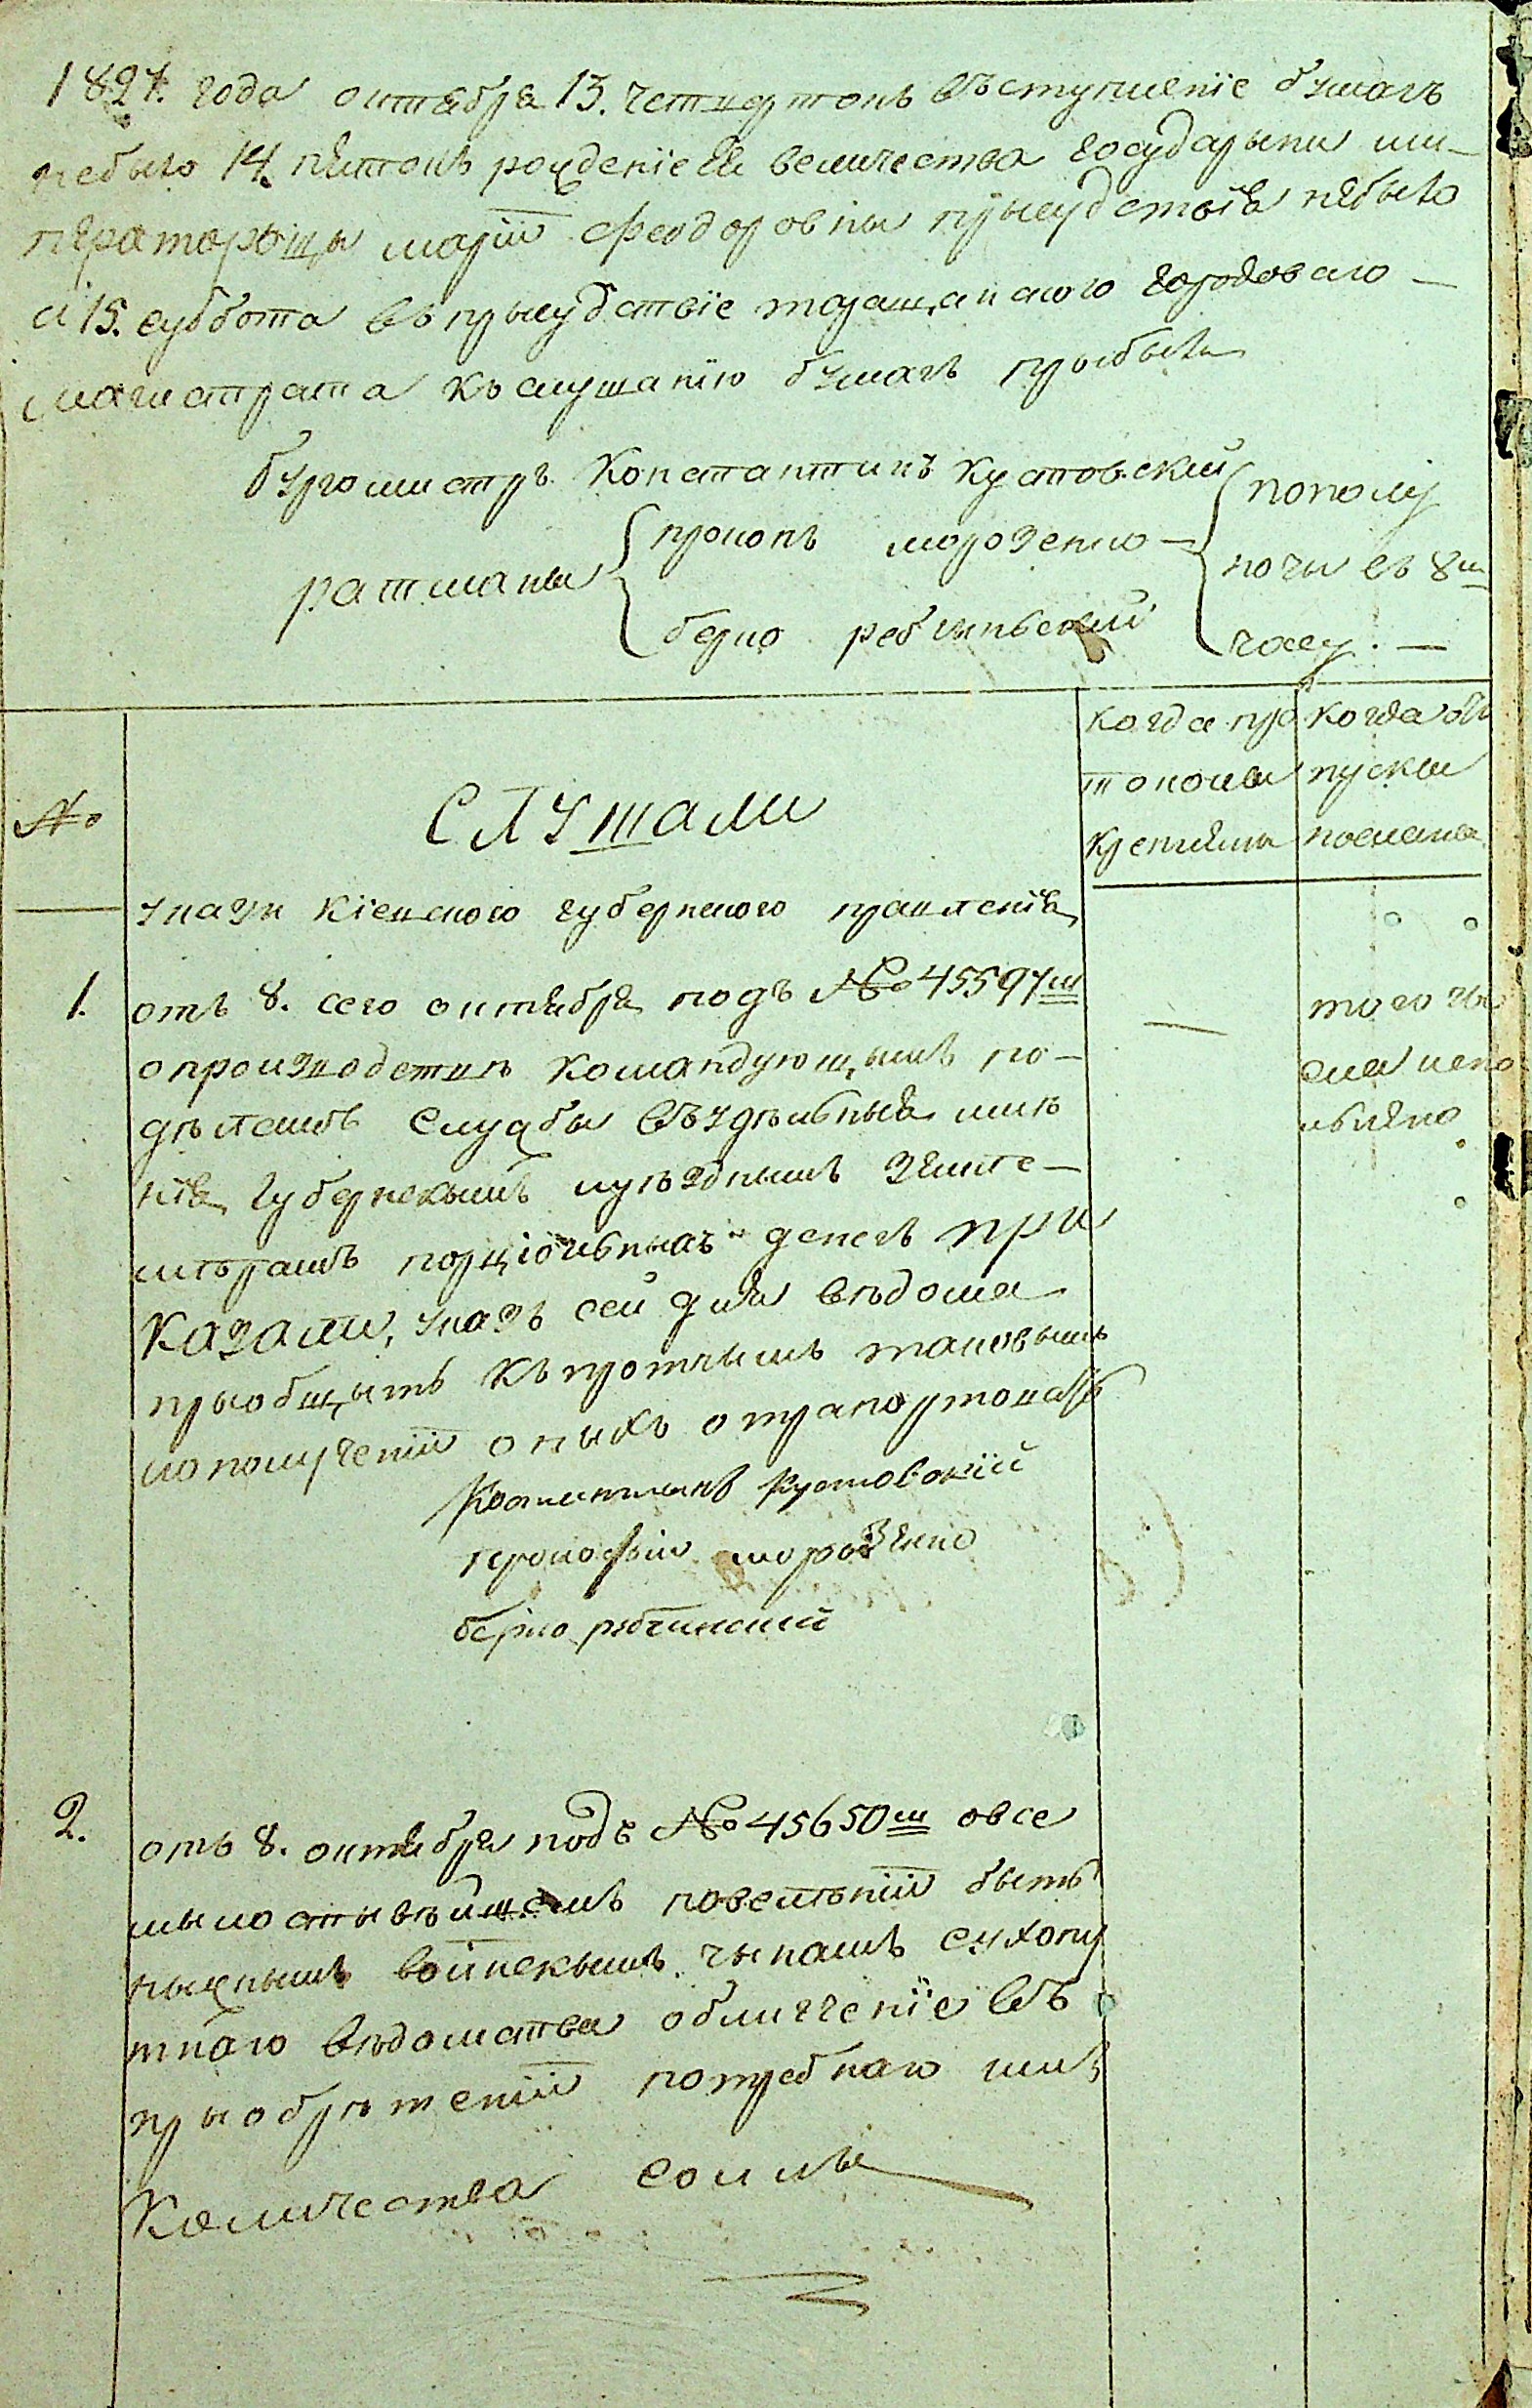 1827. года октября 13. четвертокъ въступление бумагъ
небыло 14. пятокъ рожденіе Ея величества государыни им-
ператорыцы маріи феодоровны прысудствія небыло
а 15. суббота въ прысудствіе таращанского городоваго -
магистрата къ слушанію бумагъ прыбыли
бургомистръ Константинъ Кустовский
ратманы
прокопъ морозенко -
берко ребчынский
пополу
ночи въ 8м
часу. -
No
СЛУШали
когда про
токолы
крепляны
когда от
пуски
посланы
указы Кіевского губернского правленія
1.
отъ 8. сего октября подъ No 45597м
о производствѣ командующымъ по-
дѣламъ службы въ удѣльныя имѣ
нія губернскымъ и уѣзднымъ земле-
мѣрамъ порціонныхъ денегъ при
казали, указъ сей для вѣдома
прыобщыть къ протчымъ таковымъ
и о получении оныхъ отрапортовать
того чы
сла испо
лнено
Костантинъ Кустовский
прокофий морозенко
берко ребчинский
2.
отъ 8. октября подъ No 45650м о все
мылостывѣйшемъ повелѣнии быть
нызшымъ воинскымъ чынамъ сухопу
тнаго вѣдомства облигченіе въ
прыобрѣтении потребнаго имъ
Количества соли